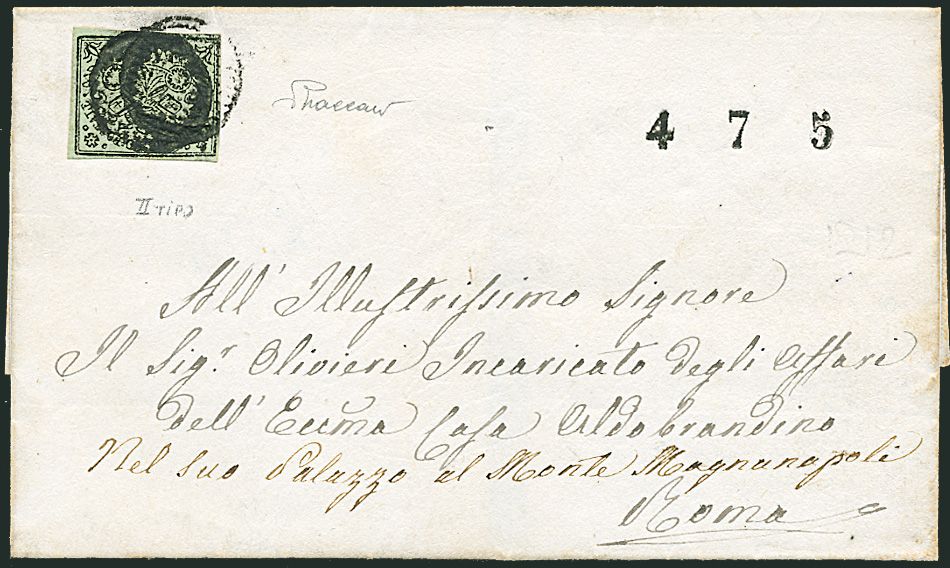 4 7 5
II tipo
All' Illustrissimo Signore
Il Sigr. Olivieri Incaricato degli Affari
dell' Eccma Casa Aldobrandino
Nel suo Palazzo al Monte Magnanapoli
Roma